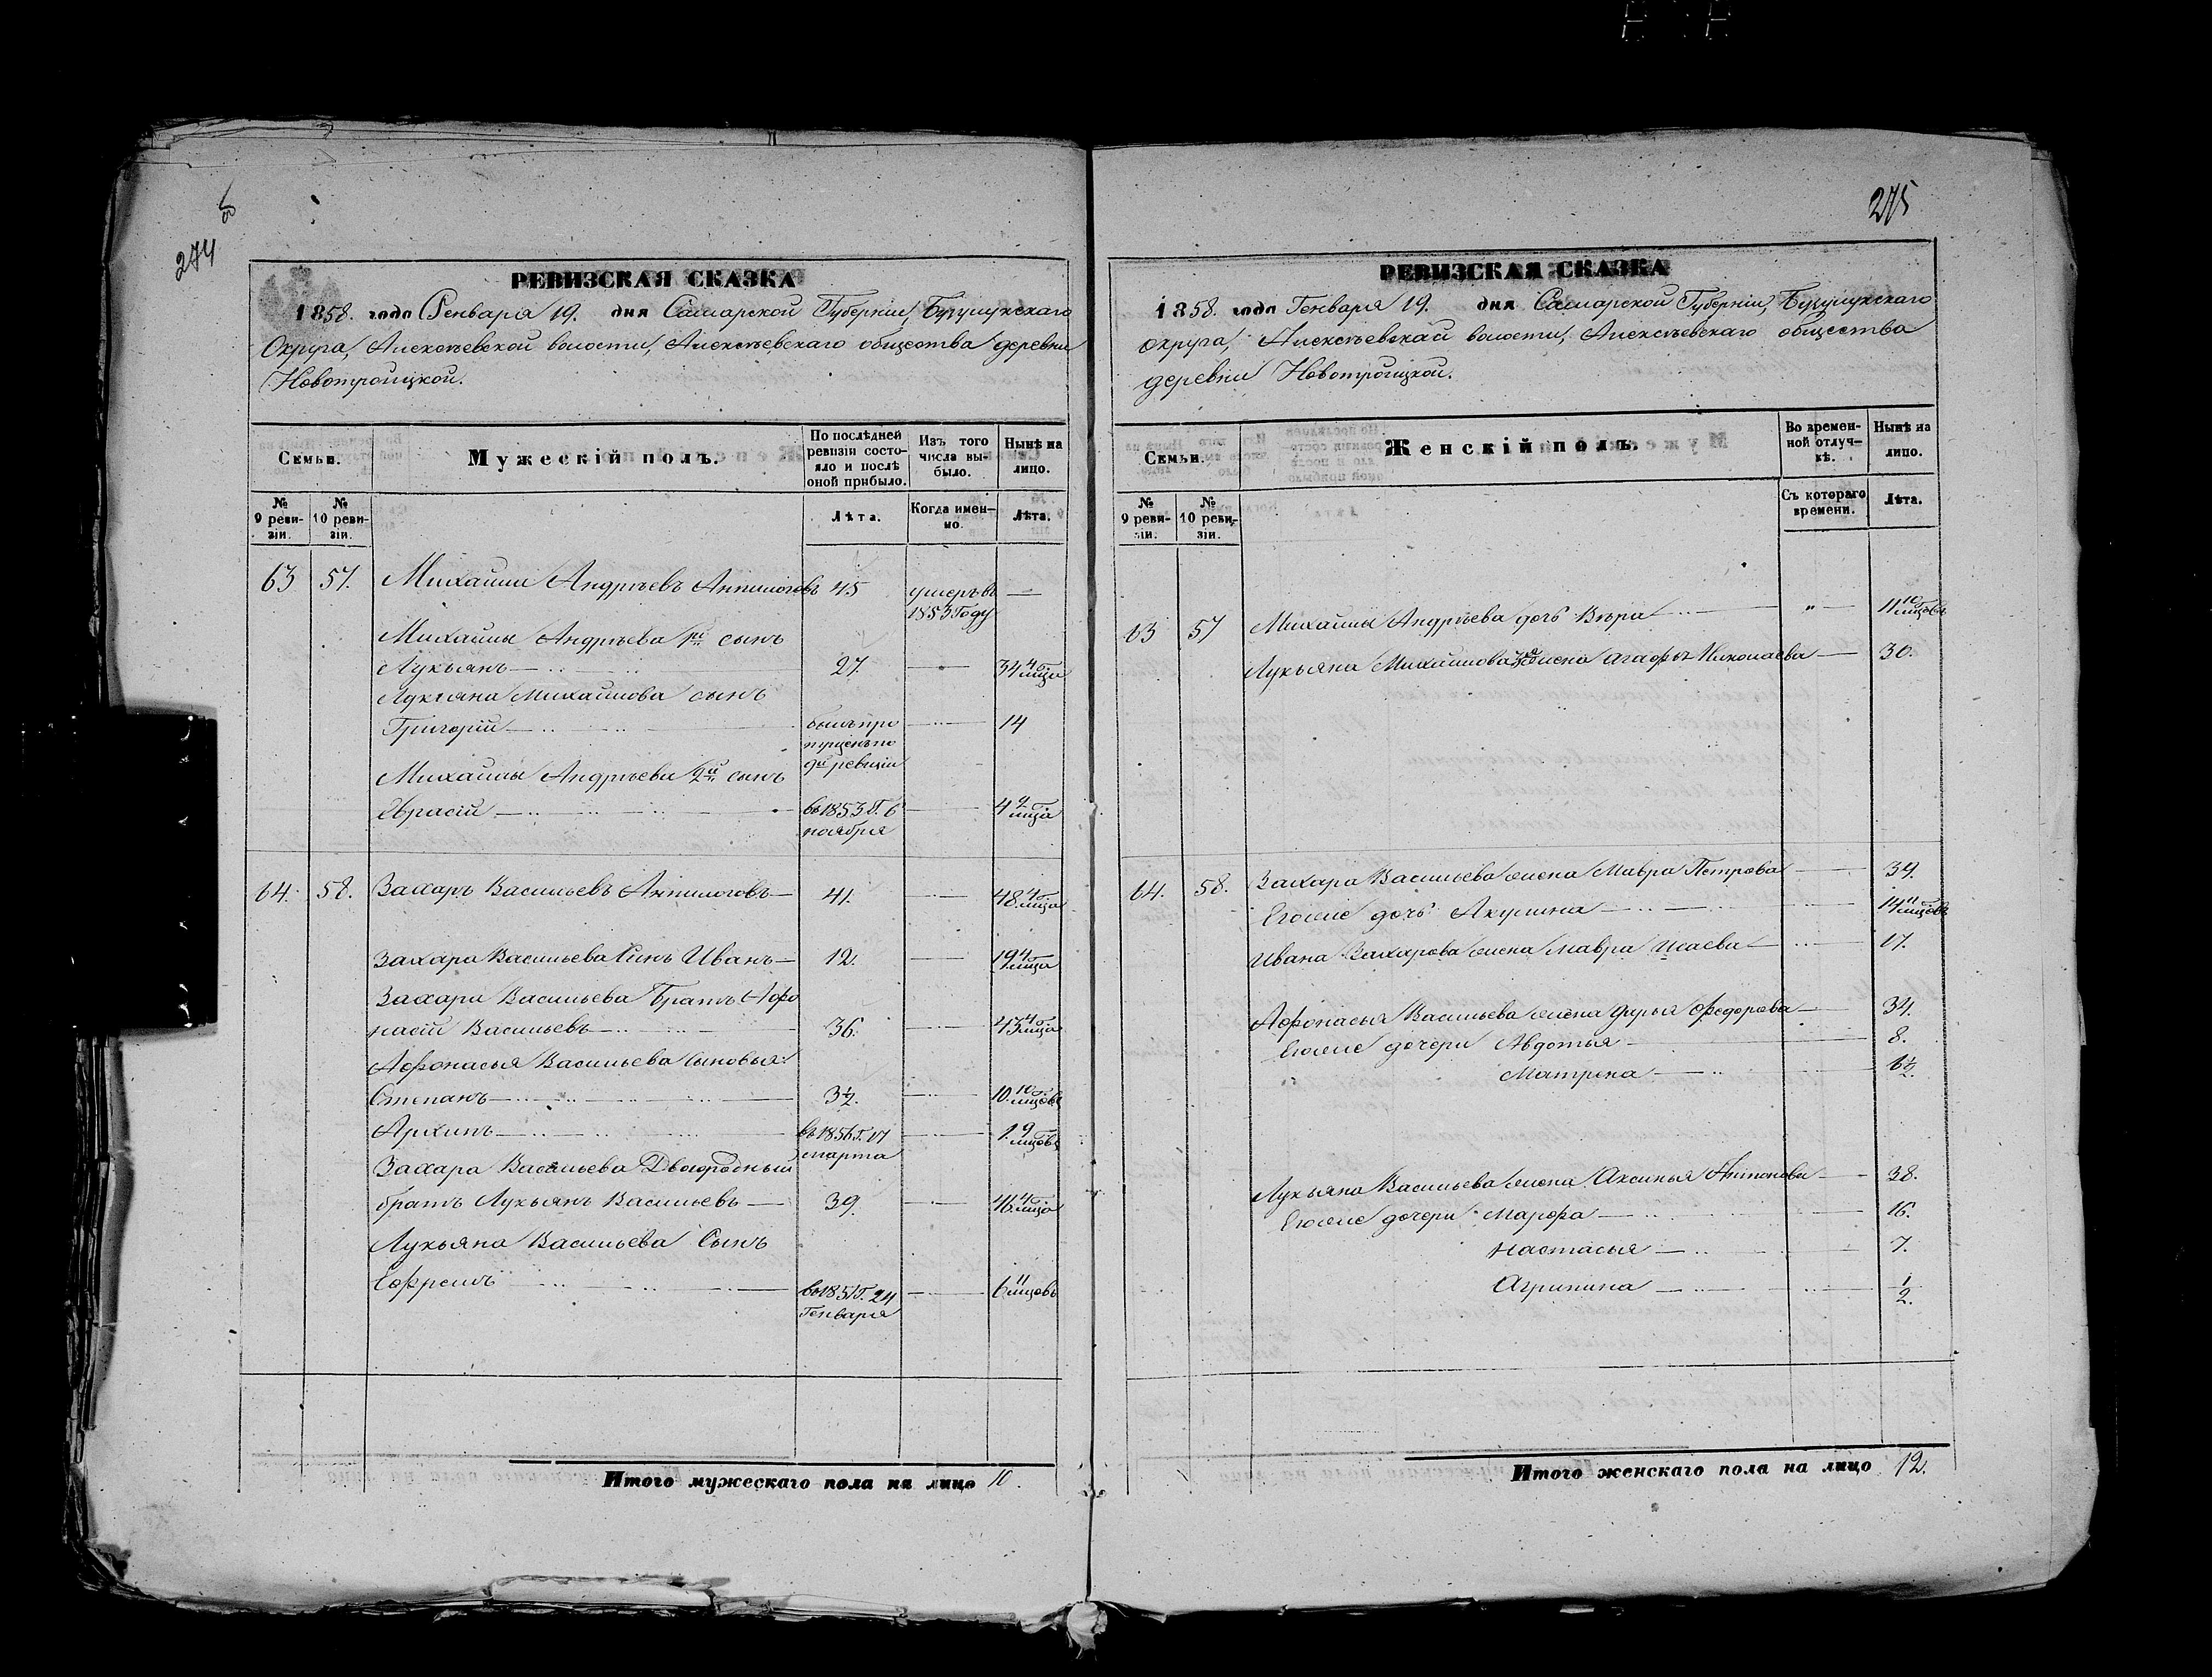 274
РЕВИЗСКАЯ СКАЗКА
1858. года Генваря 19. дня Самарской Губерніи, Бузулукскаго
Округа, Алексѣевской волости, Алексѣевскаго общества деревни
Новотроицкой.
Семьи.
Мужескій полъ.
По послѣдней ревизіи состояло и послѣ оной прибыло.
Изъ того числа выбыло.
Нынѣ на лицо.
№ 9 ревизіи.
№ 10 ревизіи.
Лѣта.
Когда именно.
Лѣта.
63 57. Михайли Андрѣевъ Анпилоговъ 45 умеръ въ —
1853 Году
Михайлы Андрѣева 1й сынъ
Лукьянъ — 27. — 34 4 м-ца
Лукьяна Михайлова сынъ
Григорій — былъ про — 14
пущенъ по
9й ревизіи
Михайлы Андрѣева 2й сынъ
въ 1853 Г. 6 — 4 2 м-ца
ноября
64. 58. Захаръ Васильевъ Анпилоговъ — 41. — 48. 4 м-ца
Захара Васильева Сынъ Иванъ — 12. — 19 4 м-ца
Захара Васильева Братъ Афо
насій Васильевъ — 36. — 43 4 м-ца
Афонасья Васильева Сыновья:
Степанъ — 3½. — 10. 10 м-цовъ
Архипъ — въ 1856 Г. 17 — 1. 9 м-цовъ
марта
Захара Васильева Двоюродный
братъ Лукьянъ Васильевъ — 39. — 46. 4 м-ца
Лукьяна Васильева Сынъ
Ефремъ — въ 1851 Г. 24 — 6 11 м-цовъ
Генваря
Итого мужескаго пола на лицо 10.
275
РЕВИЗСКАЯ СКАЗКА
1858. года Генваря 19. дня Самарской Губерніи, Бузулукскаго
округа, Алексѣевской волости, Алексѣевскаго общества
деревни Новотроицкой.
Семьи.
Женскій полъ.
Во временной отлучкѣ.
Нынѣ на лицо.
№ 9 ревизіи.
№ 10 ревизіи.
Съ котораго времени.
Лѣта.
63 57 Михайлы Андрѣева дочь Вѣра — " — 11 10 м-цовъ
Лукьяна Михайлова жена Агафья Николаева — 30.
64. 58. Захара Васильева жена Мавра Петрова — 39.
Егоже дочь Акулина — 14 11 м-цовъ
Ивана Захарова жена Мавра Исаева — 17.
Афонасья Васильева жена Дарья Федорова — 34.
Егоже дочери Авдотья — 8.
Матрена — 6½.
Лукьяна Васильева жена Аксинья Антонова — 38.
Егоже дочери Марфа — 16.
Настасья — 7.
Агрипина — ½.
Итого женскаго пола на лицо 12.